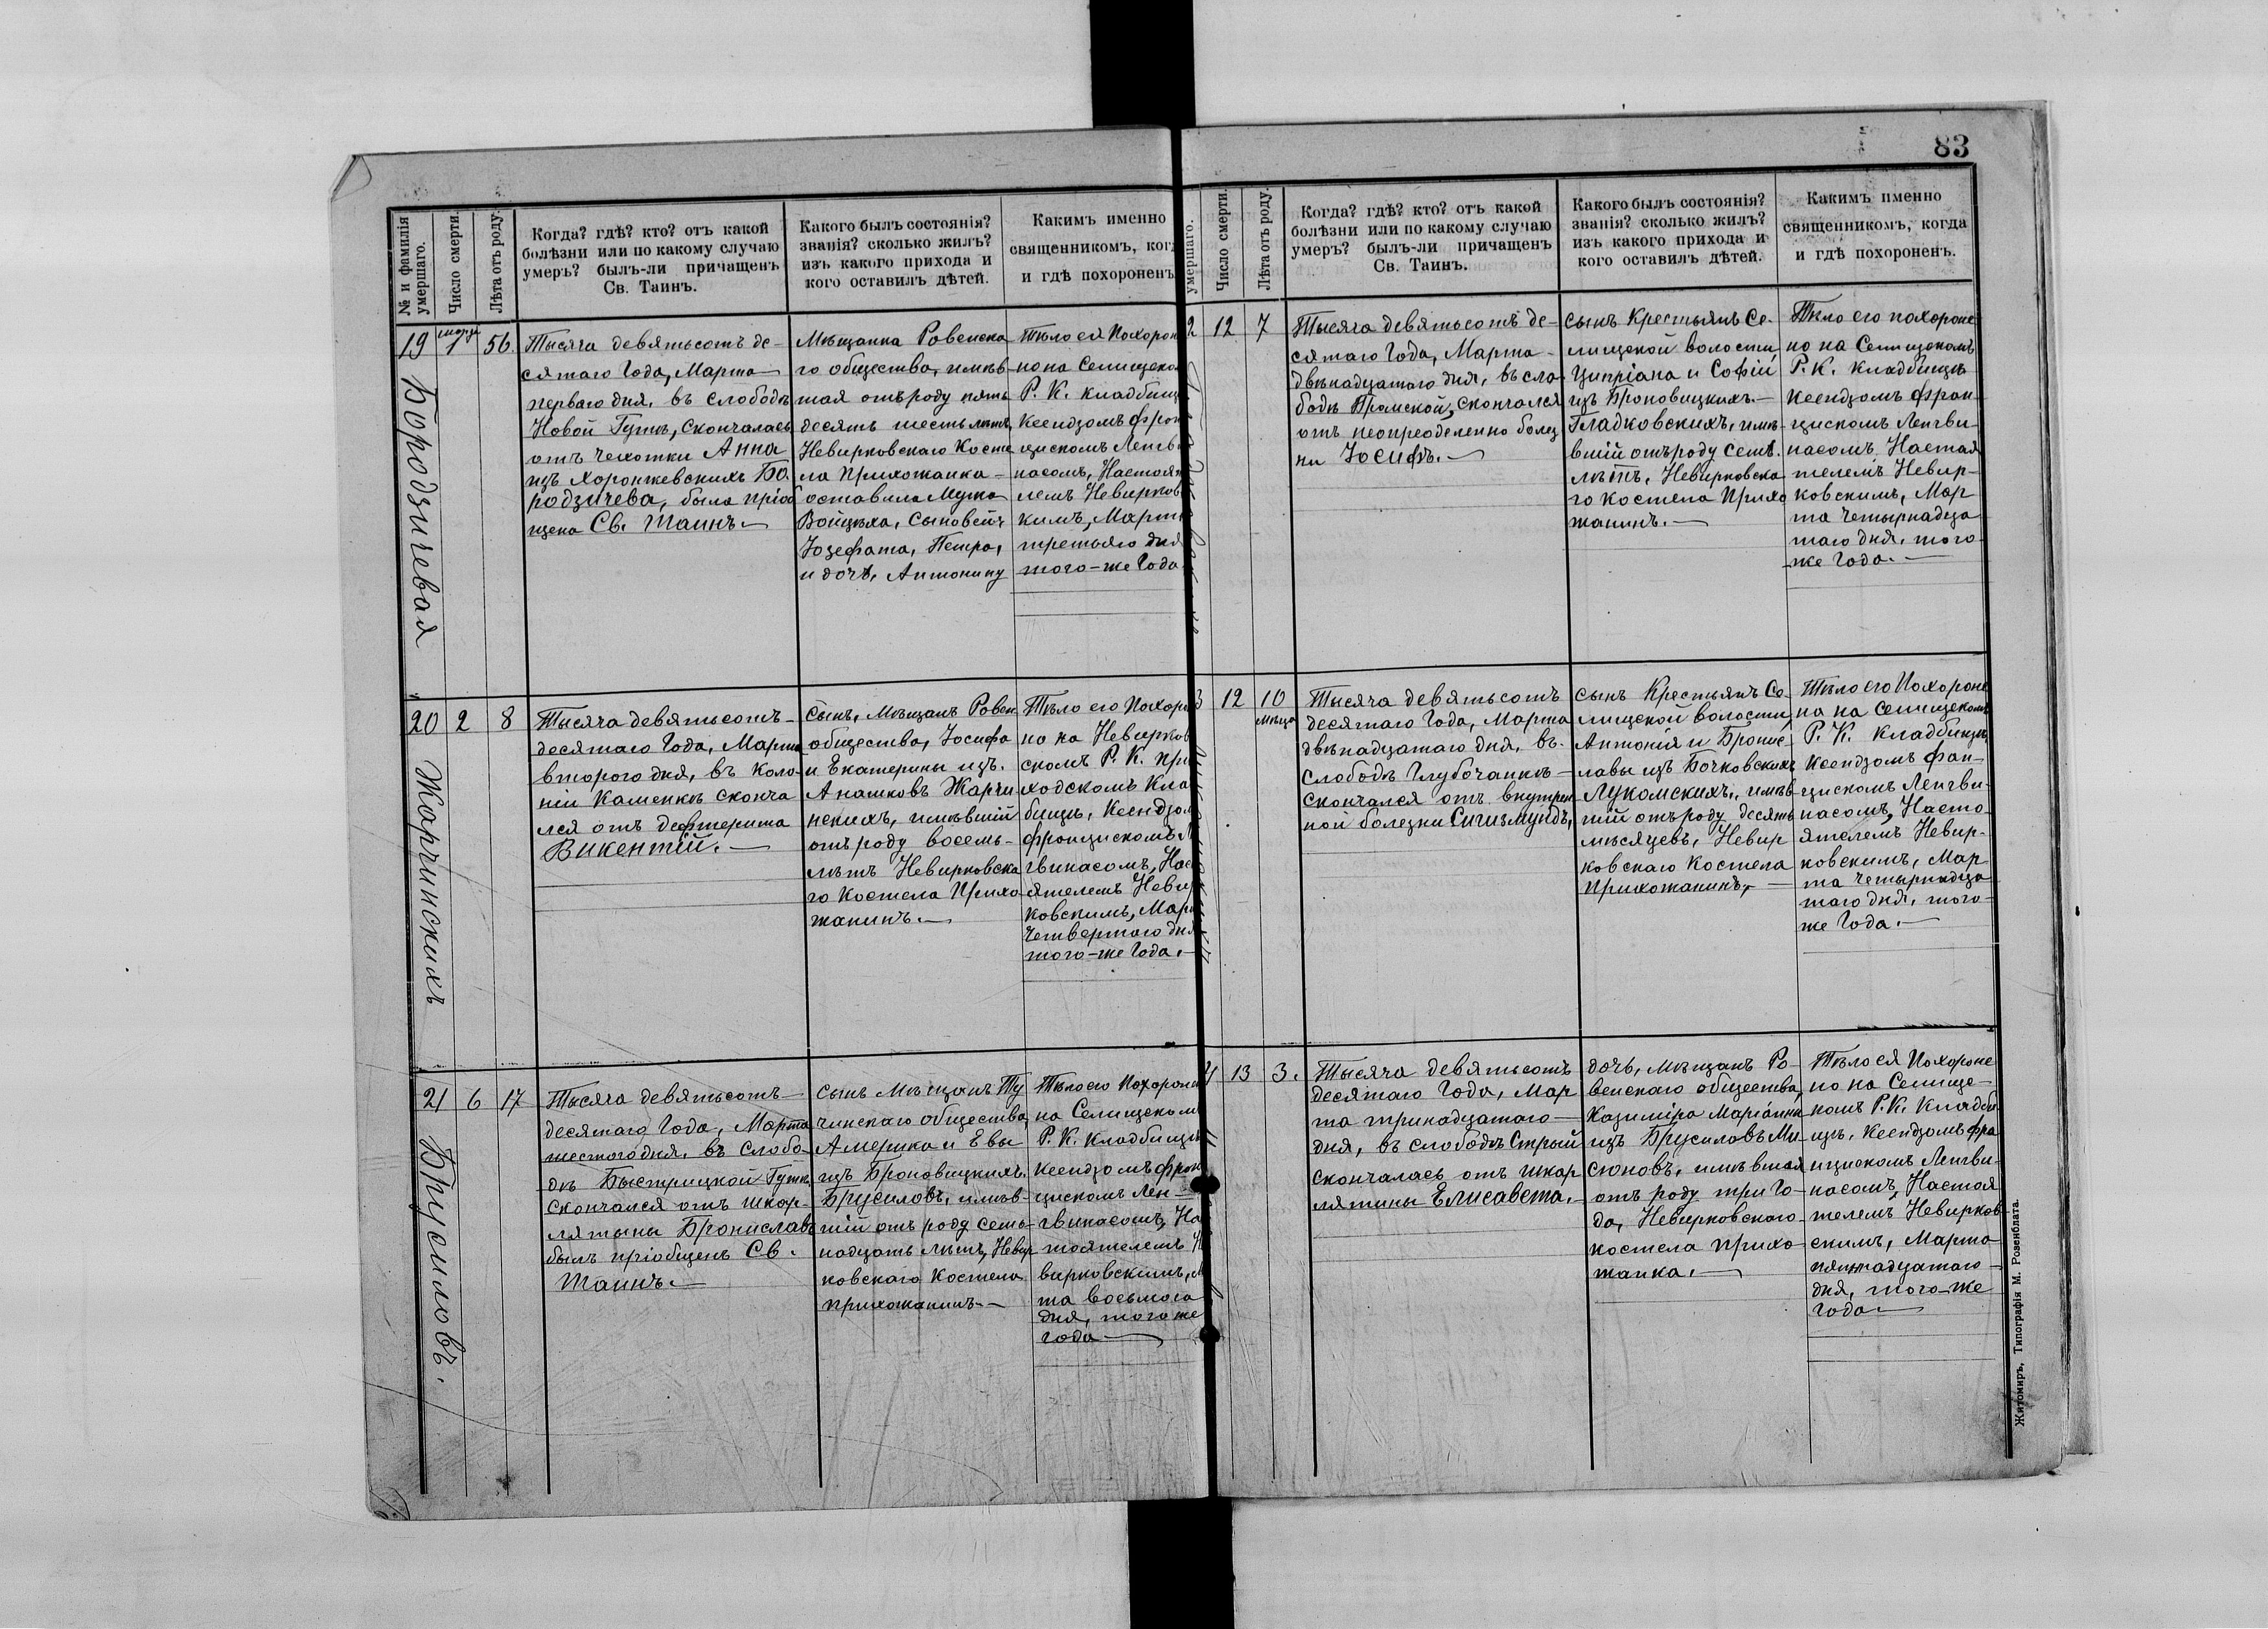 83
№ и фамилія умершаго.
Число смерти.
Лѣта отъ роду.
Когда? гдѣ? кто? отъ какой
болѣзни или по какому случаю
умеръ? былъ-ли причащенъ
Св. Таинъ.
Какого былъ состоянія?
званія? сколько жилъ?
изъ какого прихода и
кого оставилъ дѣтей.
Какимъ именно
священникомъ, ког
и гдѣ похороненъ
19
марта
1
56
Бородзичевая
Тысяча девятьсотъ де-
сятаго Года, Марта
перваго дня, въ слободѣ
Новой Гутѣ, скончалась
отъ чахотки Анна
изъ Хоронжевскихъ Бо-
родзичева, была пріоб
щена Св. Таинъ.
Мѣщанка Ровенска
го общества, имѣв
шая отъ роду пять
десять шесть лѣтъ,
Невирковскаго Косте
ла Прихожанка
оставила Мужа
Войцѣха, сыновей:
Іозефата, Петра,
и дочь, Антонину
Тѣло ея Похорон
но на Селищеко
Р. К. кладбищ
Ксендзомъ Фран
цискомъ Ленгв
насомъ, Настоят
лемъ Невирков
кимъ, Март
третьяго дня
того-же Года
20
2
8
Жарчинскихъ
Тысяча девятьсотъ
десятаго Года, Марта
второго дня, въ Коло-
ніи Каменкѣ сконча
лся отъ дифтерита
Викентій.
Сынъ, Мѣщанъ Ровен
общества, Іосифа
и Екатерины изъ
Анашковъ Жарчи
нскихъ, имѣвшій
отъ роду восемь
лѣтъ Невирковска
го Костела Прихо
жанинъ.
Тѣло его Похоро
но на Невирков
скомъ Р. К. при
ходскомъ Кла
бищѣ, Ксендзом
Францискомъ Л
гвинасомъ, Нас
ятелемъ Невир
ковскимъ, Мар
четвертаго дня
того-же Года.
21
6
17
Брусиловъ.
Тысяча девятьсотъ
десятаго Года, Марта
шестого дня, въ слобо
дѣ Быстрицкой Гутѣ
скончался отъ шкар-
лятыны Брониславъ
былъ пріобщенъ Св.
Таинъ.
Сынъ Мѣщанъ Ту
чинскаго общества,
Америка и Евы
изъ Броновицкихъ
Брусиловъ, имѣв-
шій отъ роду семь-
надцать лѣтъ, Невир
ковскаго Костела
прихожанинъ.
Тѣло его Похороне
на Селищеком
Р. К. Кладбищѣ
Ксендзомъ Фран
цискомъ Лен-
гвинасомъ, На
тоятелемъ Н
вирковскимъ, М
та восьмого
дня, того же
года
умершаго.
Число смерти.
Лѣта отъ роду.
Когда? гдѣ? кто? отъ какой
болѣзни или по какому случаю
умеръ? былъ-ли причащенъ
Св. Таинъ.
Какого былъ состоянія?
званія? сколько жилъ?
изъ какого прихода и
кого оставилъ дѣтей.
Какимъ именно
священникомъ, когда
и гдѣ похороненъ.
2
12
7
Тысяча девятьсотъ де-
сятаго Года, Марта
двѣнадцатаго дня, въ сло
бодѣ Прамской, скончался
отъ неопределенно болез
ни Іосифъ.
сынъ Крестьянъ Се-
лищской волости,
Ципріана и Софіи
изъ Броновицкихъ.
Гладковскихъ, имѣ-
вшій отъ роду семь
лѣтъ, Невирковска
го костела Прихо
жанинъ.
Тѣло его похороне
но на Селищекомъ
Р. К. кладбищѣ
Ксендзомъ Фран-
цискомъ Ленгви-
насомъ, Настоя
телемъ Невир-
ковскимъ, Мар
та четырнадца
таго дня, того-
же Года.
3
12
10
мѣсца
Тысяча девятьсотъ
десятаго Года, Марта
двѣнадцатаго дня, въ
Слободѣ Глубочанкѣ
скончался отъ внутрен
ной болезни Сигизмундъ,
сынъ Крестьянъ Се-
лищской волости,
Антонія и Бронис-
лавы изъ Бочковскихъ
Лукомскихъ, имѣв
шій отъ роду десять
мѣсяцевъ, Невир
ковскаго Костела
Прихожанинъ,
Тѣло его Похороне
на на Селищекомъ
Р. К. Кладбищѣ,
Ксендзомъ Фан-
цискомъ Ленгви-
насомъ, Насто-
ятелемъ Невир-
ковскимъ, Мар
та четырнадца
таго дня, того-
же Года.
4
13
3.
Тысяча девятьсотъ
десятаго Года, Мар
та тринадцатаго
дня, въ слободѣ Стрый
скончалась отъ шкар
лятины Елисавета.
дочь, Мѣщанъ Ро-
венскаго общества,
Казиміра Маріанны
изъ Брусиловъ Ми-
сюновъ, имѣвшая
отъ роду три Го-
да, Невирковскаго
костела прихо
жанка.
Тѣло ея Похороне
но на Селище-
комъ Р. К. Кладби
щѣ, Ксендзомъ Фра
нцискомъ Ленгви-
насомъ, Настоя
телемъ Невирков
скимъ, Марта
пятнадцатаго
дня, того-же
Года
Житомиръ, Типографія М. Розенблата.